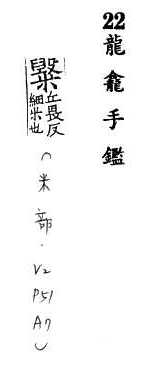 22龍龕手鑑
丘畏反
細米也
(米部.V2 P51 A7)